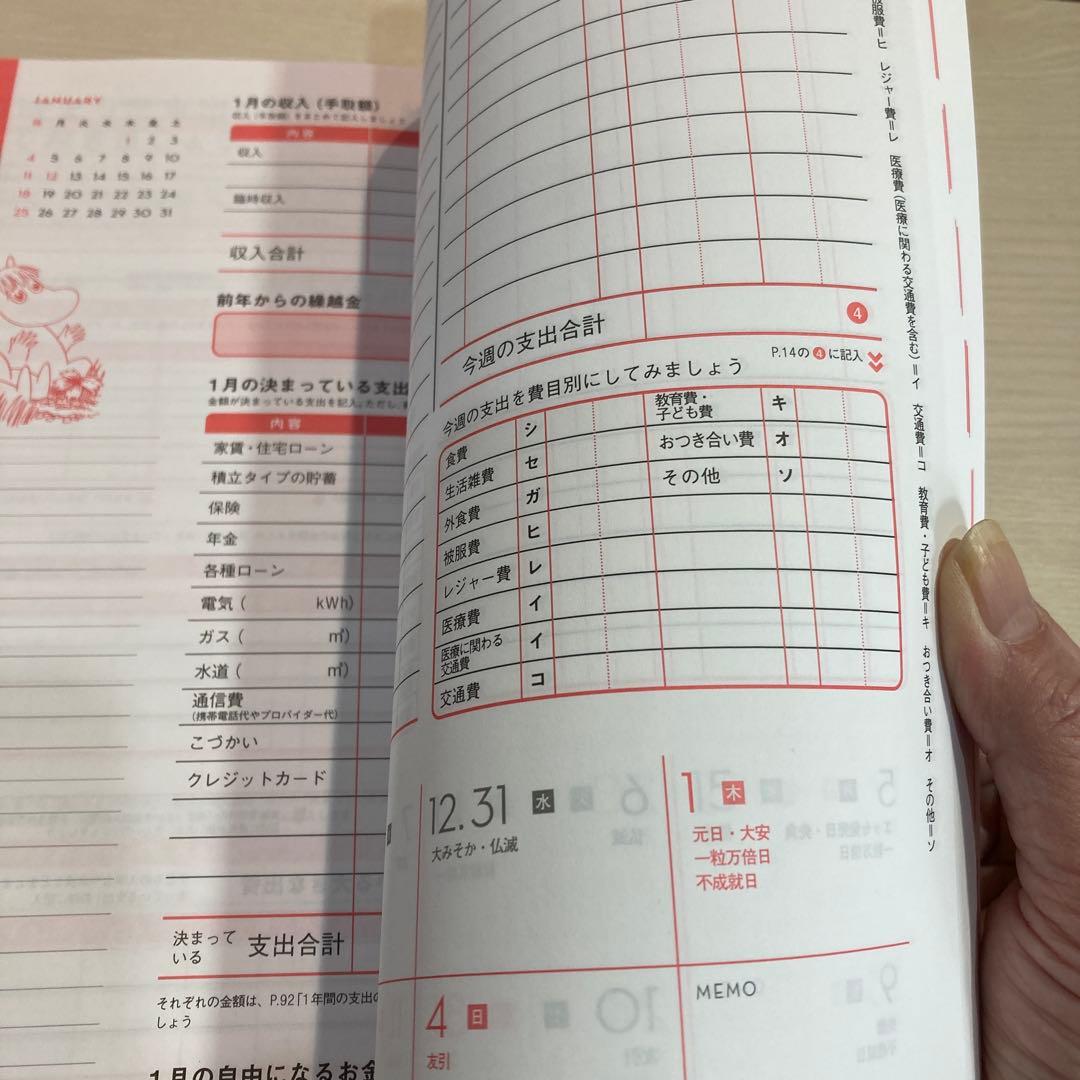 JANUARY
日 月 火 水 木 金 土
1 2 3
4 5 6 7 8 9 10
11 12 13 14 15 16 17
18 19 20 21 22 23 24
25 26 27 28 29 30 31
1月の収入（手取額）
収入（手取額）をまとめて記入しましょう
内容
収入
臨時収入
収入合計
前年からの繰越金
1月の決まっている支出
金額が決まっている支出を記入。ただし、
内容
家賃・住宅ローン
積立タイプの貯蓄
保険
年金
各種ローン
電気（ kWh）
ガス（ ㎥）
水道（ ㎥）
通信費
（携帯電話代やプロバイダー代）
こづかい
クレジットカード
決まって
いる 支出合計
それぞれの金額は、P.92「1年間の支出の
しょう
1月の自由になるお金
今週の支出合計
4
P.14の4に記入
今週の支出を費目別にしてみましょう
食費 シ
生活雑費 セ
外食費 ガ
被服費 ヒ
レジャー費 レ
医療費 イ
医療に関わる
交通費 イ
交通費 コ
教育費・
子ども費 キ
おつき合い費 オ
その他 ソ
服費＝ヒ レジャー費＝レ 医療費（医療に関わる交通費を含む）＝イ 交通費＝コ 教育費・子ども費＝キ おつき合い費＝オ その他＝ソ
12.31 水
大みそか・仏滅
1 木
元日・大安
一粒万倍日
不成就日
4 日
友引
MEMO